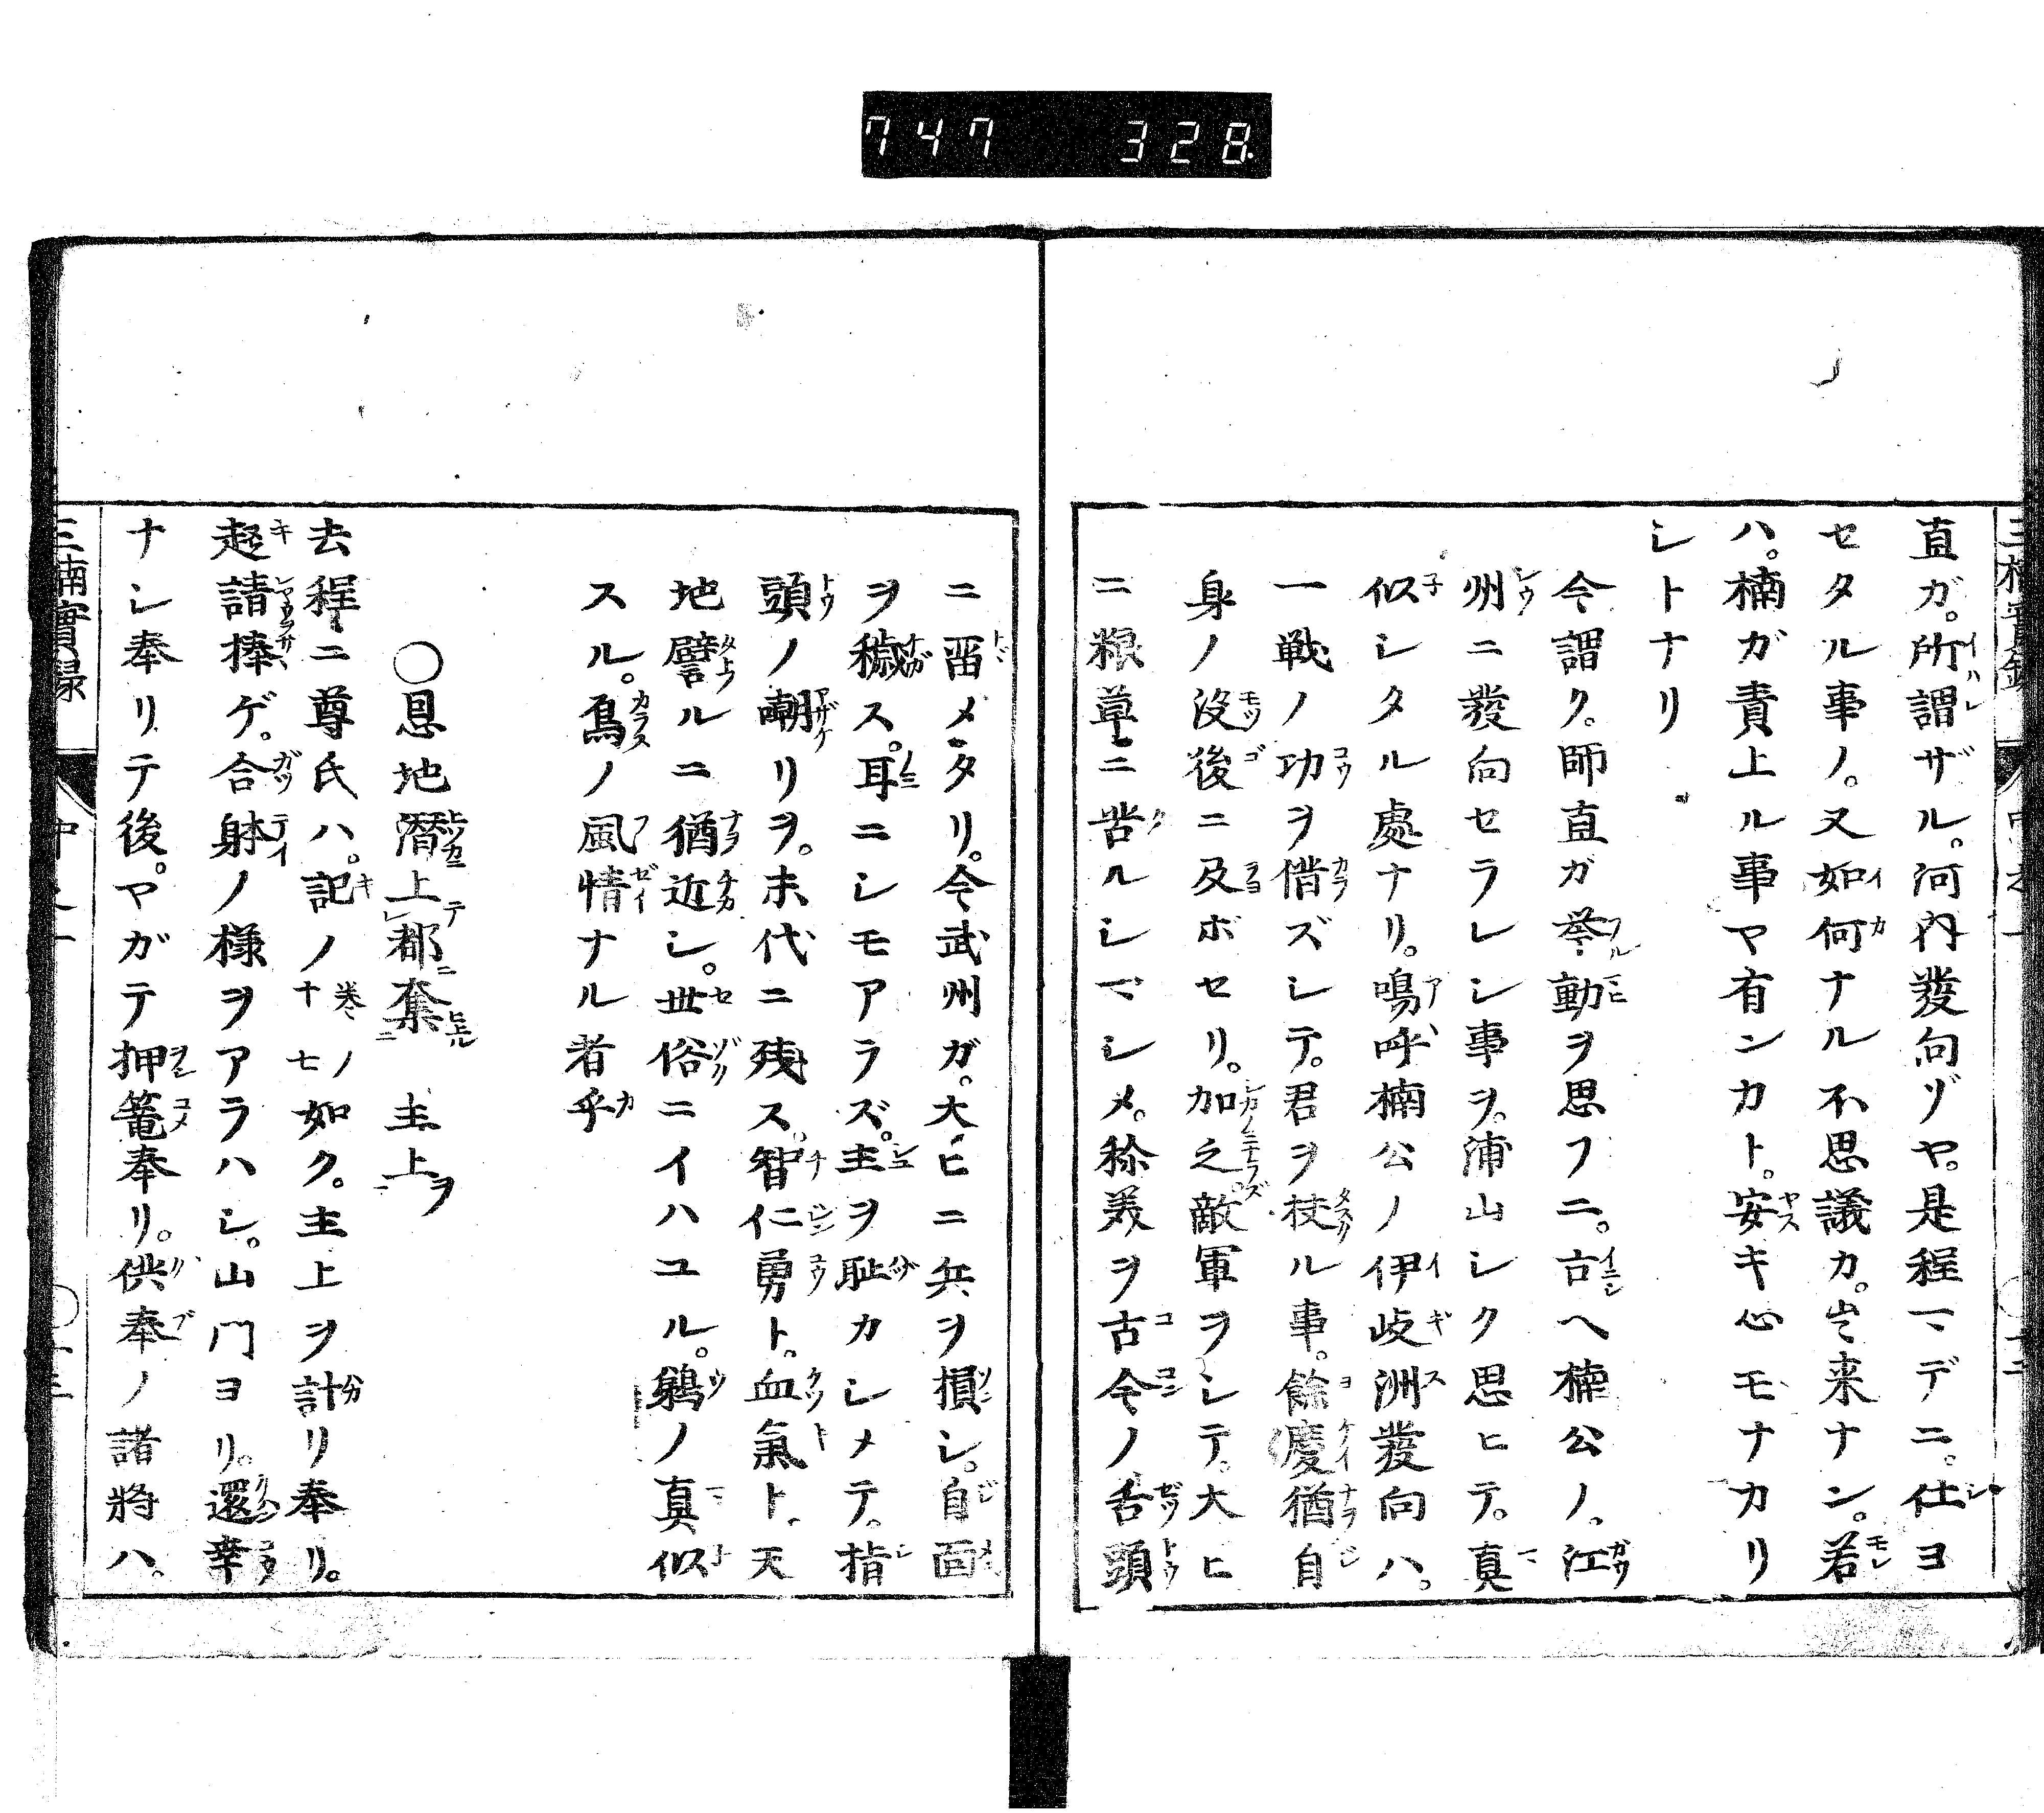 747 328
直ガ。所謂ザル。河内發向ゾヤ。是程マデニ。仕ヨ
セタル事ノ。又如何ナル不思議カ。出来ナン。若
ハ。楠ガ責上ル事ヤ有ンカト。安キ心モナカリ
シトナリ
今謂ク。師直ガ挙動ヲ思フニ。古ヘ楠公ノ。江
州ニ發向セラレシ事ヲ。浦山シク思ヒテ。真
似シタル處ナリ。鳴呼楠公ノ伊岐洲發向ハ。
一戦ノ功ヲ偕ズシテ。君ヲ杖ル事。餘慶猶自
身ノ没後ニ及ボセリ。加之敵軍ヲシテ。大ヒ
ニ粮草ニ苦ルシマシメ。称美ヲ古今ノ舌頭
ニ畄メタリ。今武州ガ。大ヒニ兵ヲ損シ。自面
ヲ穢ス。耳ニシモアラズ。主ヲ耻カシメテ。指
頭ノ嘲リヲ。末代ニ残ス。智仁勇ト。血氣ト。天
地譬ルニ猶近シ。世俗ニイハユル。鵜ノ真似
スル。烏ノ風情ナル者乎
〇恩地潜上都奪主上ヲ
去程ニ尊氏ハ。記ノ十七巻ノ如ク。主上ヲ計リ奉リ。
起請捧ゲ。合躰ノ様ヲアラハシ。山門ヨリ。還幸
ナシ奉リテ後。ヤガテ押篭奉リ。供奉ノ諸將ハ。
三楠實録